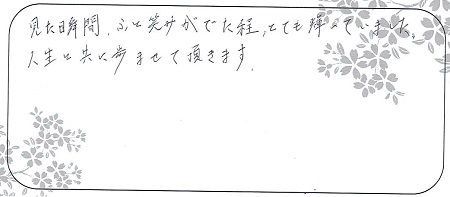 見た瞬間、ふと笑みがでた程、とても輝っていました。
人生と共に歩ませて頂きます。